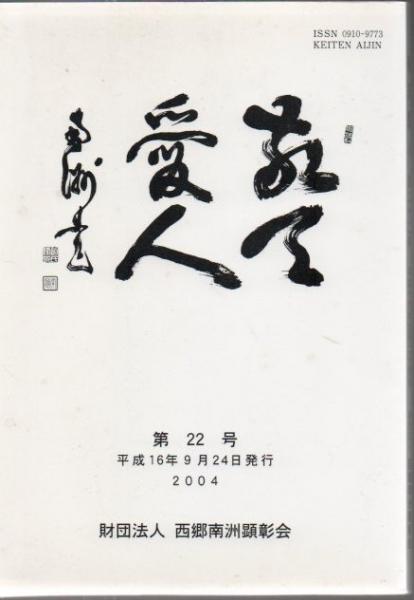 ISSN 0910-9773
KEITEN AIJIN
敬天
愛人
南洲書
第 22 号
平成16年9月24日発行
2004
財団法人 西郷南洲顕彰会